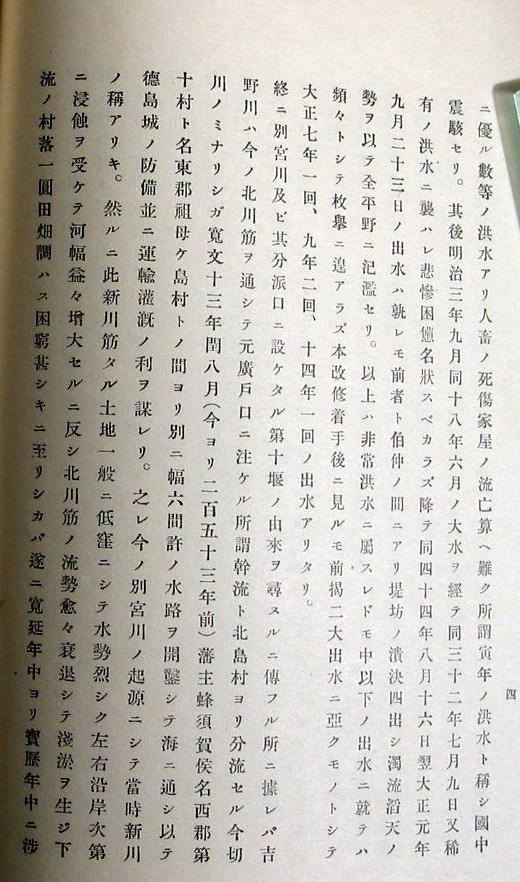 ニ優ル數等ノ洪水アリ人畜ノ死傷家屋ノ流亡算ヘ難ク所謂寅年ノ洪水ト稱シ國中
震駭セリ。其後明治三年九月同十八年六月ノ大水ヲ經テ同三十二年七月九日又稀
有ノ洪水ニ襲ハレ悲慘困憊名狀スベカラズ降テ同四十四年八月十六日翌大正元年
九月二十三日ノ出水ハ孰レモ前者ト伯仲ノ間ニアリ堤坊ノ潰決四出シ濁流滔天ノ
勢ヲ以テ全平野ニ氾濫セリ。以上ハ非常洪水ニ屬スレドモ中以下ノ出水ニ就テハ
頻々トシテ枚擧ニ遑アラズ本改修着手後ニ見ルモ前揭二大出水ニ亞クモノトシテ
大正七年一回、九年二回、十四年一回ノ出水アリタリ。
終ニ別宮川及ビ其分派口ニ設ケタル第十堰ノ由來ヲ尋ヌルニ傳フル所ニ據レバ吉
野川ハ今ノ北川筋ヲ通シテ元廣戶口ニ注ケル所謂幹流ト北島村ヨリ分流セル今切
川ノミナリシガ寬文十三年閏八月(今ヨリ二百五十三年前)藩主蜂須賀侯名西郡第
十村ト名東郡祖母ケ島村トノ間ヨリ別ニ幅六間許ノ水路ヲ開鑿シテ海ニ通シ以テ
德島城ノ防備並ニ運輸灌漑ノ利ヲ謀レリ。之レ今ノ別宮川ノ起源ニシテ當時新川
ノ稱アリキ。然ルニ此新川筋タル土地一般ニ低窪ニシテ水勢烈シク左右沿岸次第
ニ浸蝕ヲ受ケテ河幅益々增大セルニ反シ北川筋ノ流勢愈々衰退シテ淺淤ヲ生ジ下
流ノ村落一圓田畑調ハス困窮甚シキニ至リシカバ遂ニ寬延年中ヨリ寶歷年中ニ涉
四